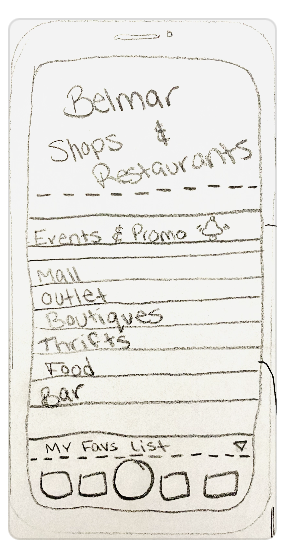 Belmar
Shops &
Restaurants
Events & Promo
Mall
Outlet
Boutiques
Thrifts
Food
Bar
My Favs List